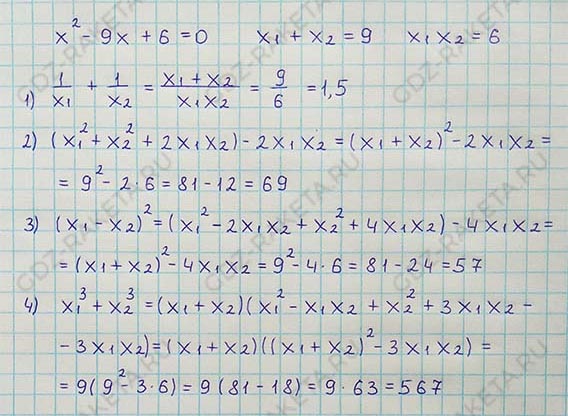 x² - 9x + 6 = 0 x₁ + x₂ = 9 x₁x₂ = 6
1) 1/x₁ + 1/x₂ = (x₁ + x₂)/(x₁x₂) = 9/6 = 1,5
2) (x₁² + x₂² + 2x₁x₂) - 2x₁x₂ = (x₁ + x₂)² - 2x₁x₂ =
= 9² - 2·6 = 81 - 12 = 69
3) (x₁ - x₂)² = (x₁² - 2x₁x₂ + x₂² + 4x₁x₂) - 4x₁x₂ =
= (x₁ + x₂)² - 4x₁x₂ = 9² - 4·6 = 81 - 24 = 57
4) x₁³ + x₂³ = (x₁ + x₂)(x₁² - x₁x₂ + x₂² + 3x₁x₂ -
- 3x₁x₂) = (x₁ + x₂)((x₁ + x₂)² - 3x₁x₂) =
= 9(9² - 3·6) = 9(81 - 18) = 9·63 = 567
GDZ-RAKETA.RU